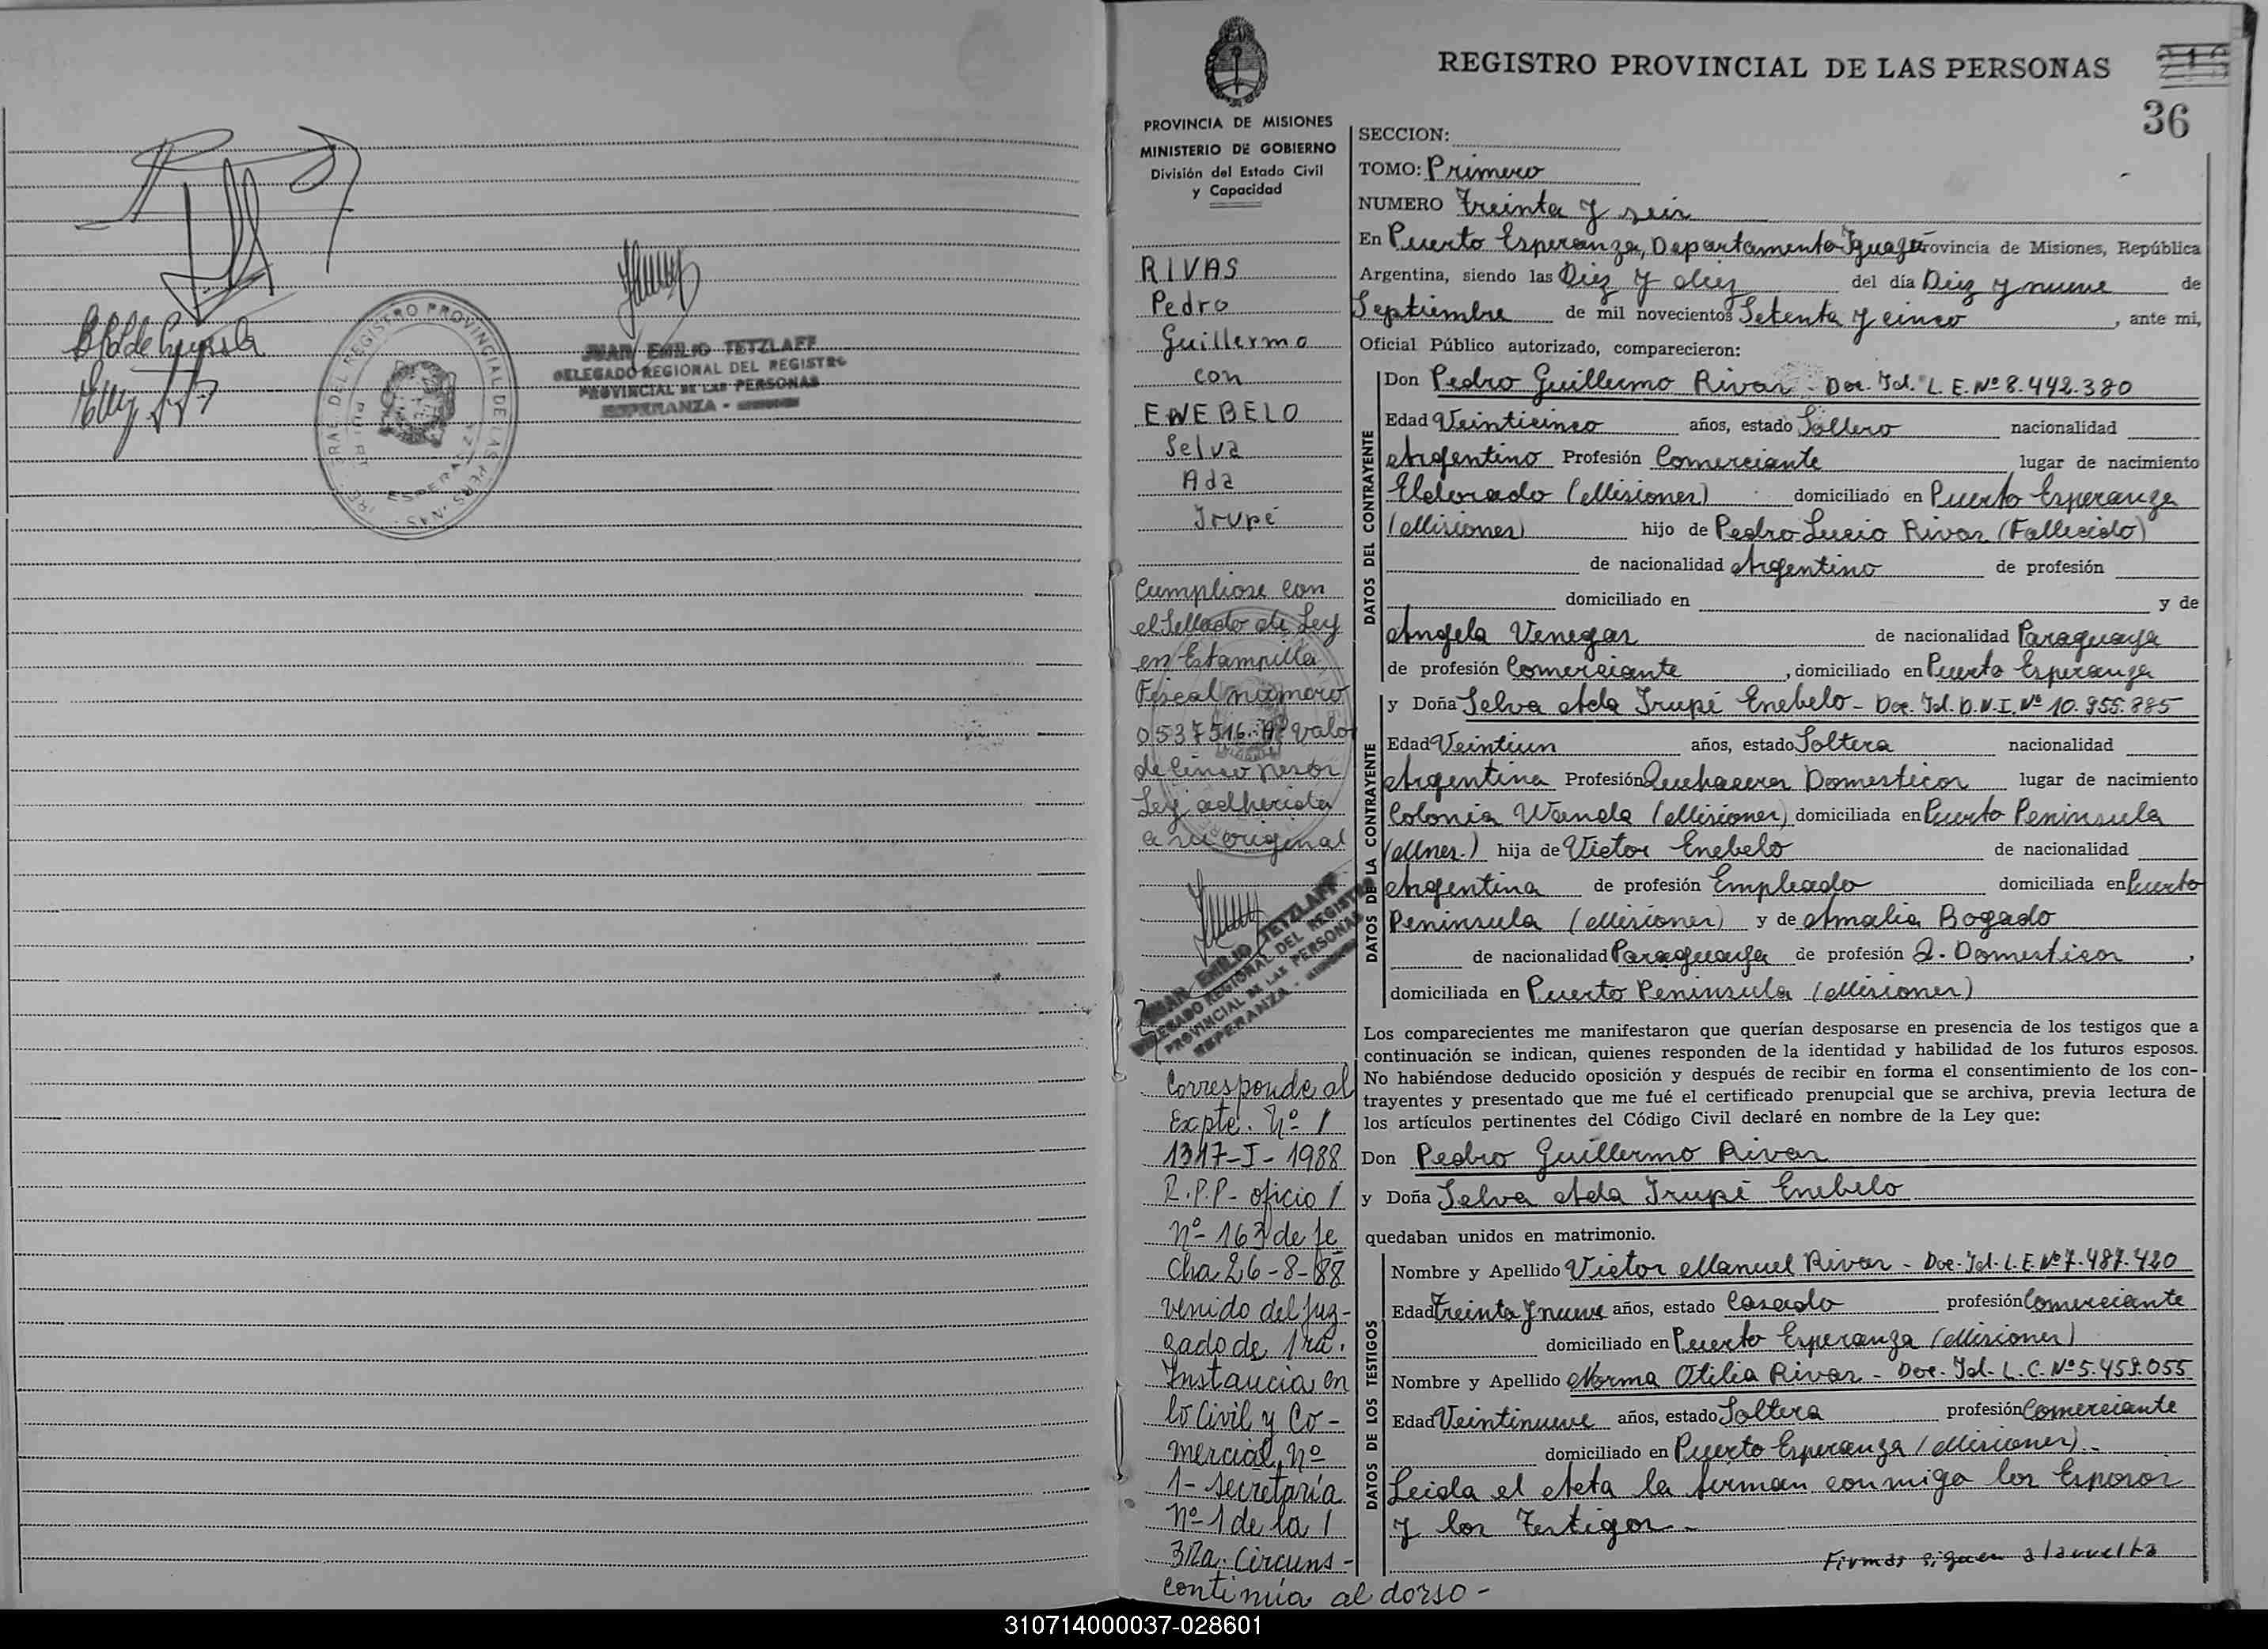 JUAN EMILIO TETZLAFF
DELEGADO REGIONAL DEL REGISTRO
PROVINCIAL DE LAS PERSONAS
ESPERANZA -
REGISTRO PROVINCIAL DE LAS PERSONAS
36
PROVINCIA DE MISIONES
MINISTERIO DE GOBIERNO
División del Estado Civil
y Capacidad
RIVAS
Pedro
Guillermo
con
ENEBELO
Selva
Ada
Irupé
Cumpliose con
el Sellado de Ley
en Estampilla
Fiscal número
0537516. A valor
de Cinco pesos
Ley adherida
a su original
JUAN EMILIO TETZLAFF
DELEGADO REGIONAL DEL REGISTRO
PROVINCIAL DE LAS PERSONAS
ESPERANZA -
Corresponde al
Expte. Nº /
1317-I-1988
R.P.P- oficio /
nº- 163 de fe
cha 26-8-88
venido del Juz-
gado de 1ra.
Instancia en
lo Civil y Co-
mercial nº
1- Secretaría
nº-1 de la /
3ra. Circuns-
continúa al dorso -
SECCION:
TOMO: Primero
NUMERO Treinta y seis
En Puerto Esperanza, Departamento Iguazú Provincia de Misiones, República
Argentina, siendo las Diez y diez del día Diez y nueve de
Septiembre de mil novecientos Setenta y cinco, ante mi,
Oficial Público autorizado, comparecieron:
DATOS DEL CONTRAYENTE
Don Pedro Guillermo Rivas - Doc. Id. L. E. Nº 8.442.380
Edad Veinticinco años, estado Soltero nacionalidad
Argentino Profesión Comerciante lugar de nacimiento
Eldorado (Misiones) domiciliado en Puerto Esperanza
(Misiones) hijo de Pedro Lucio Rivas (Fallecido)
de nacionalidad Argentino de profesión
domiciliado en y de
Angela Venegas de nacionalidad Paraguaya
de profesión Comerciante, domiciliado en Puerto Esperanza
DATOS DE LA CONTRAYENTE
y Doña Selva Ada Irupé Enebelo - Doc. Id. D.N.I. Nº 10.955.885
Edad Veintiun años, estado Soltera nacionalidad
Argentina Profesión Quehaceres Domesticos lugar de nacimiento
Colonia Wanda (Misiones) domiciliada en Puerto Peninsula
(Mnes.) hija de Victor Enebelo de nacionalidad
Argentina de profesión Empleado domiciliada en Puerto
Peninsula (Misiones) y de Amalia Bogado
de nacionalidad Paraguaya de profesión Q. Domesticos,
domiciliada en Puerto Peninsula (Misiones)
Los comparecientes me manifestaron que querían desposarse en presencia de los testigos que a
continuación se indican, quienes responden de la identidad y habilidad de los futuros esposos.
No habiéndose deducido oposición y después de recibir en forma el consentimiento de los con-
trayentes y presentado que me fué el certificado prenupcial que se archiva, previa lectura de
los artículos pertinentes del Código Civil declaré en nombre de la Ley que:
Don Pedro Guillermo Rivas
y Doña Selva Ada Irupé Enebelo
quedaban unidos en matrimonio.
DATOS DE LOS TESTIGOS
Nombre y Apellido Victor Manuel Rivas - Doc. Id. L. E. Nº 7.487.420
Edad Treinta y nueve años, estado Casado profesión Comerciante
domiciliado en Puerto Esperanza (Misiones)
Nombre y Apellido Norma Otilia Rivas - Doc. Id. L. C. Nº 5.459.055
Edad Veintinueve años, estado Soltera profesión Comerciante
domiciliado en Puerto Esperanza (Misiones).-
Leida el Acta la firman conmigo los Esposos
y los Testigos -
Firmas siguen a la vuelta
310714000037-028601